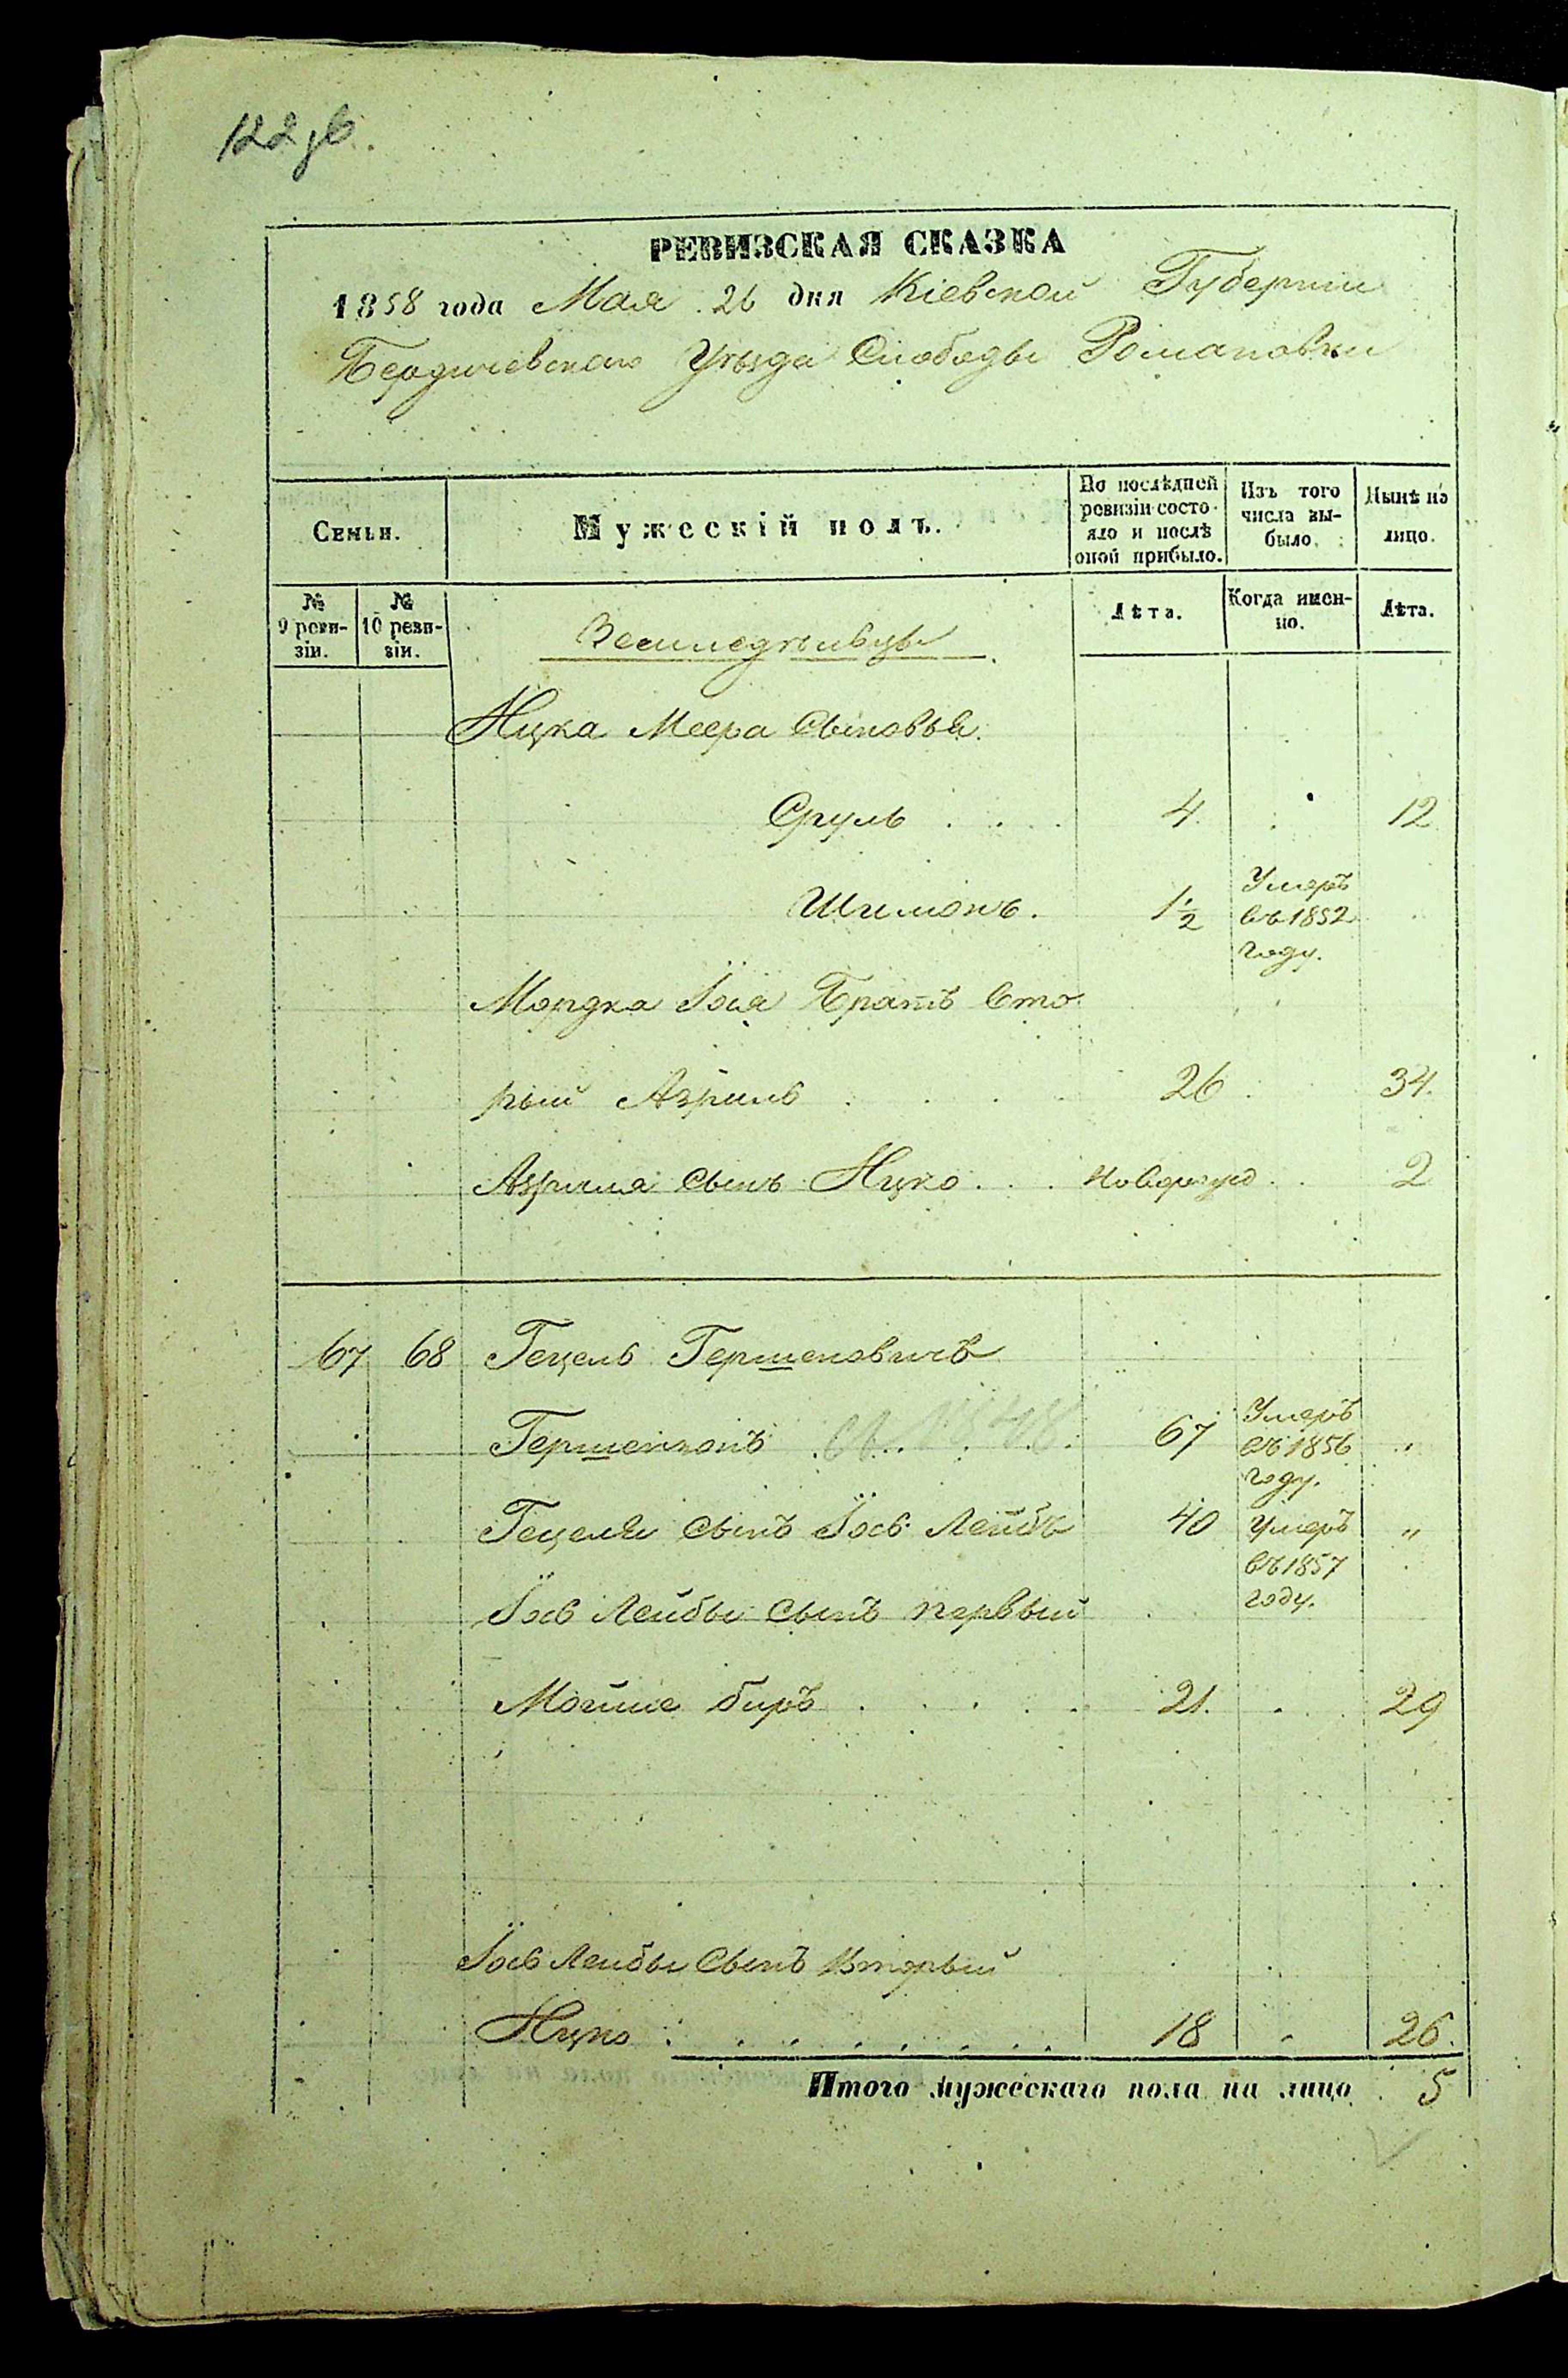 122 зв.
РЕВИЗСКАЯ СКАЗКА
1858 года Мая 26 дня Кіевской Губерніи
Бердичевскаго Уѣзда Слободы Романовки
Семьи.
Мужескій полъ.
По послѣдней ревизіи состояло и послѣ оной прибыло.
Изъ того числа выбыло.
Нынѣ на лицо.
№ 9 ревизіи.
№ 10 ревизіи.
Земледѣльцы
Лѣта.
Когда именно.
Лѣта.
Ицка Меера Сыновья.
Сруль . . . 4 12
Шимонъ. 1½ Умеръ въ 1852 году.
Мордка Іося Братъ Вто
рый Азриль . . . 26 34.
Азриля Сынъ Ицко . . . Новорожд . . 2
67 68 Гецель Гершковичъ
67 Умеръ въ 1856 году. "
Гецеля Сынъ Іось Лейбъ 40 Умеръ въ 1857 году. "
Іось Лейбы Сынъ первый
Мойше Беръ . . . . 21. 29
Іось Лейбы Сынъ Вторый
Ицко . . . . . . . 18 26.
Итого мужескаго пола на лицо 5